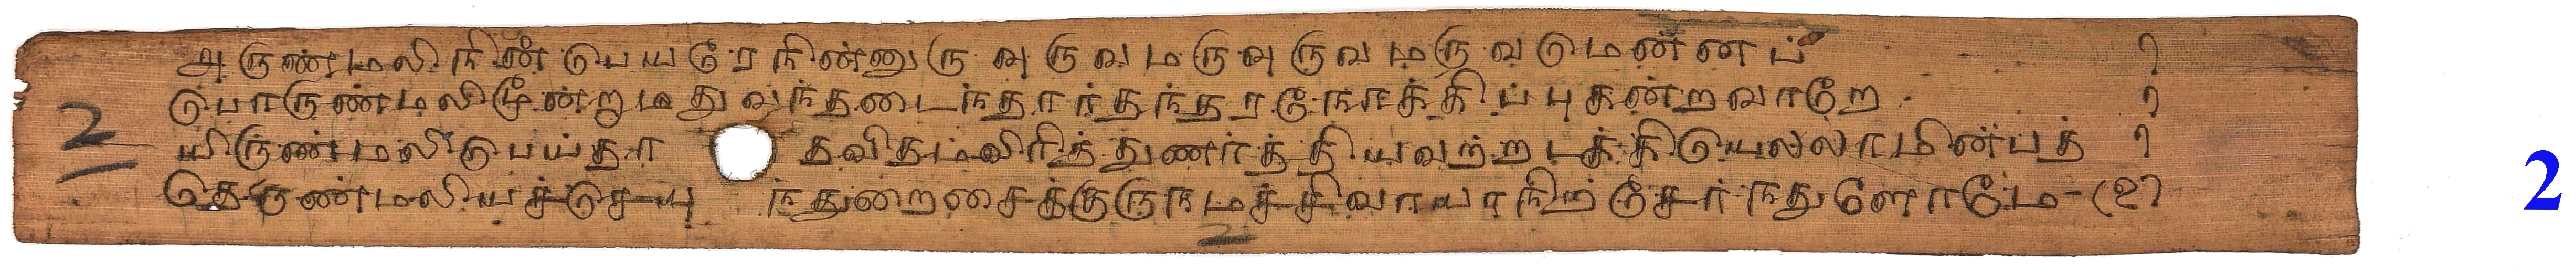 அருண்மலி நின் பெயரே நின்னுரு வுருவமருவுருவமருவமென்னப் ௧
பொருண்மலிமூன்றுமதுவந்தடைந்தார்தந்தரநோக்கிப்புகன்றவாறே ௧
யிருண்மலிபெய்தா தவிதம்விரித்துணர்த்தியவற்றடக்கியெல்லாமின்பத் ௧
தெருண்மலியச்செயு ந்துறைசைக்குருநமச்சிவாயாநிற் சேர்ந்துளோமே - (௨)
2
2
2